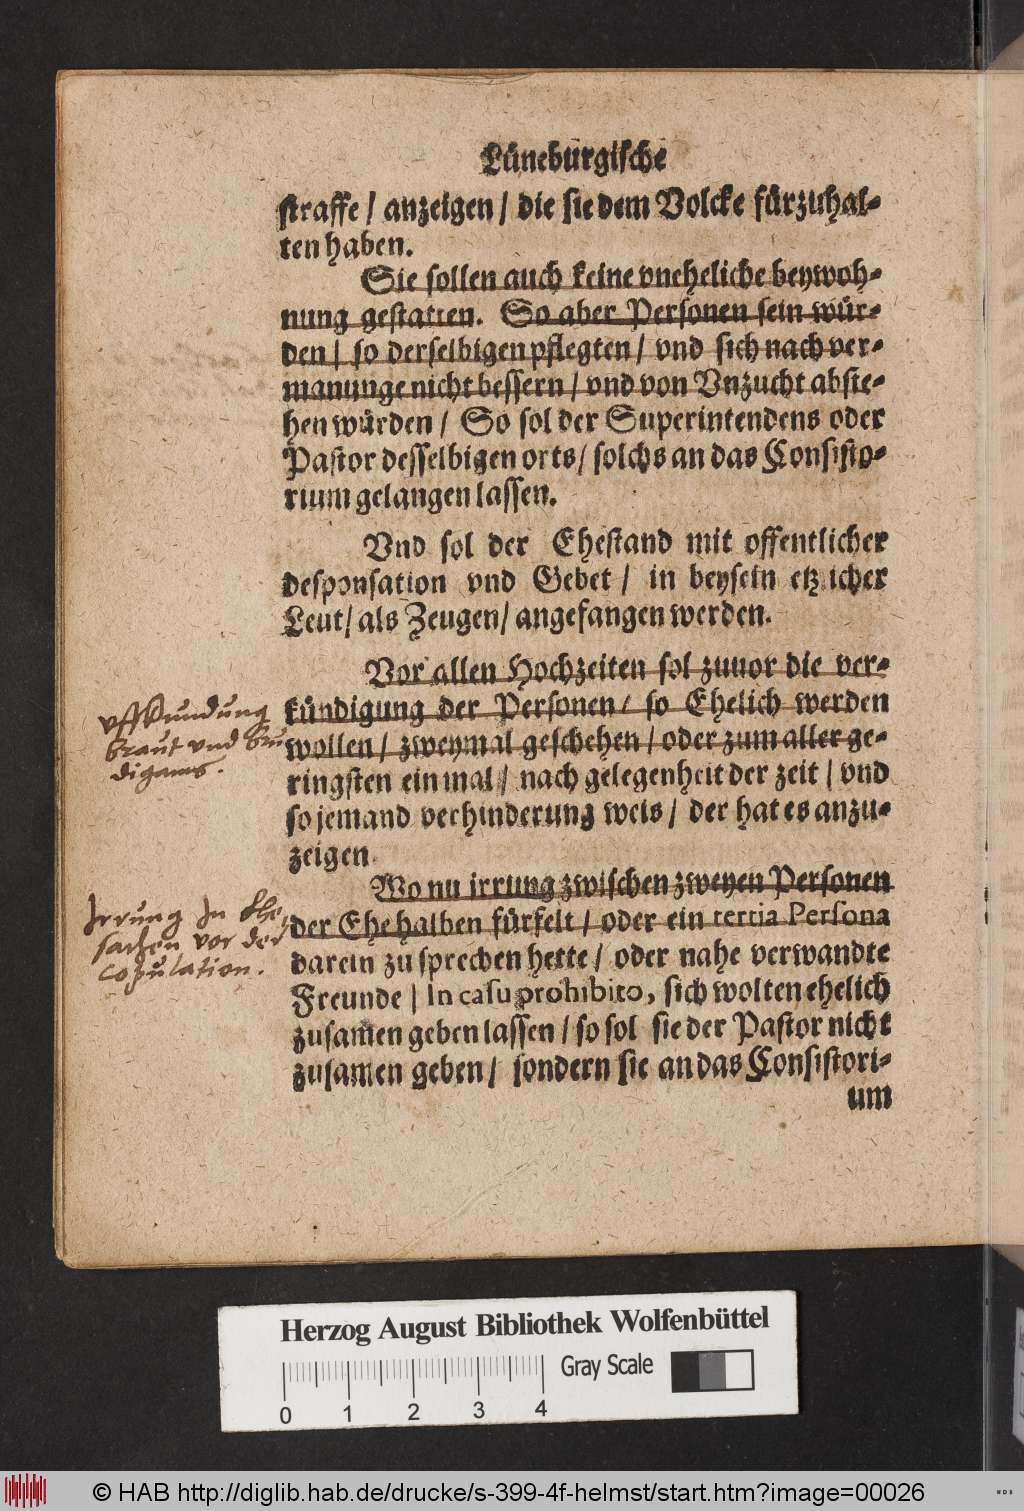 Lüneburgische
straffe / anzeigen / die sie dem Volcke fürzuhal-
ten haben.
Sie sollen auch keine vneheliche beywoh-
nung gestatten. So aber Personen sein wür-
den / so derselbigen pflegten / vnd sich nach ver-
manunge nicht bessern / vnd von Vnzucht abste-
hen würden / So sol der Superintendens oder
Pastor desselbigen orts / solchs an das Consisto-
rium gelangen lassen.
Vnd sol der Ehestand mit offentlicher
desponsation vnd Gebet / in beysein etzlicher
Leut / als Zeugen / angefangen werden.
Vor allen Hochzeiten sol zuuor die ver-
kündigung der Personen / so Ehelich werden
wollen / zweymal geschehen / oder zum aller ge-
ringsten ein mal / nach gelegenheit der zeit / vnd
so jemand verhinderung weis / der hat es anzu-
zeigen.
vffkundung
braut vnd breu
digams.
Wo nu irrung zwischen zweyen Personen
der Ehe halben fürfelt / oder ein tertia Persona
darein zu sprechen hette / oder nahe verwandte
Freunde / In casu prohibito, sich wolten ehelich
zusamen geben lassen / so sol sie der Pastor nicht
zusamen geben / sondern sie an das Consistori-
um
Irrung In Ehe
sachen vor der
copulation.
Herzog August Bibliothek Wolfenbüttel
Gray Scale
0 1 2 3 4
© HAB http://diglib.hab.de/drucke/s-399-4f-helmst/start.htm?image=00026